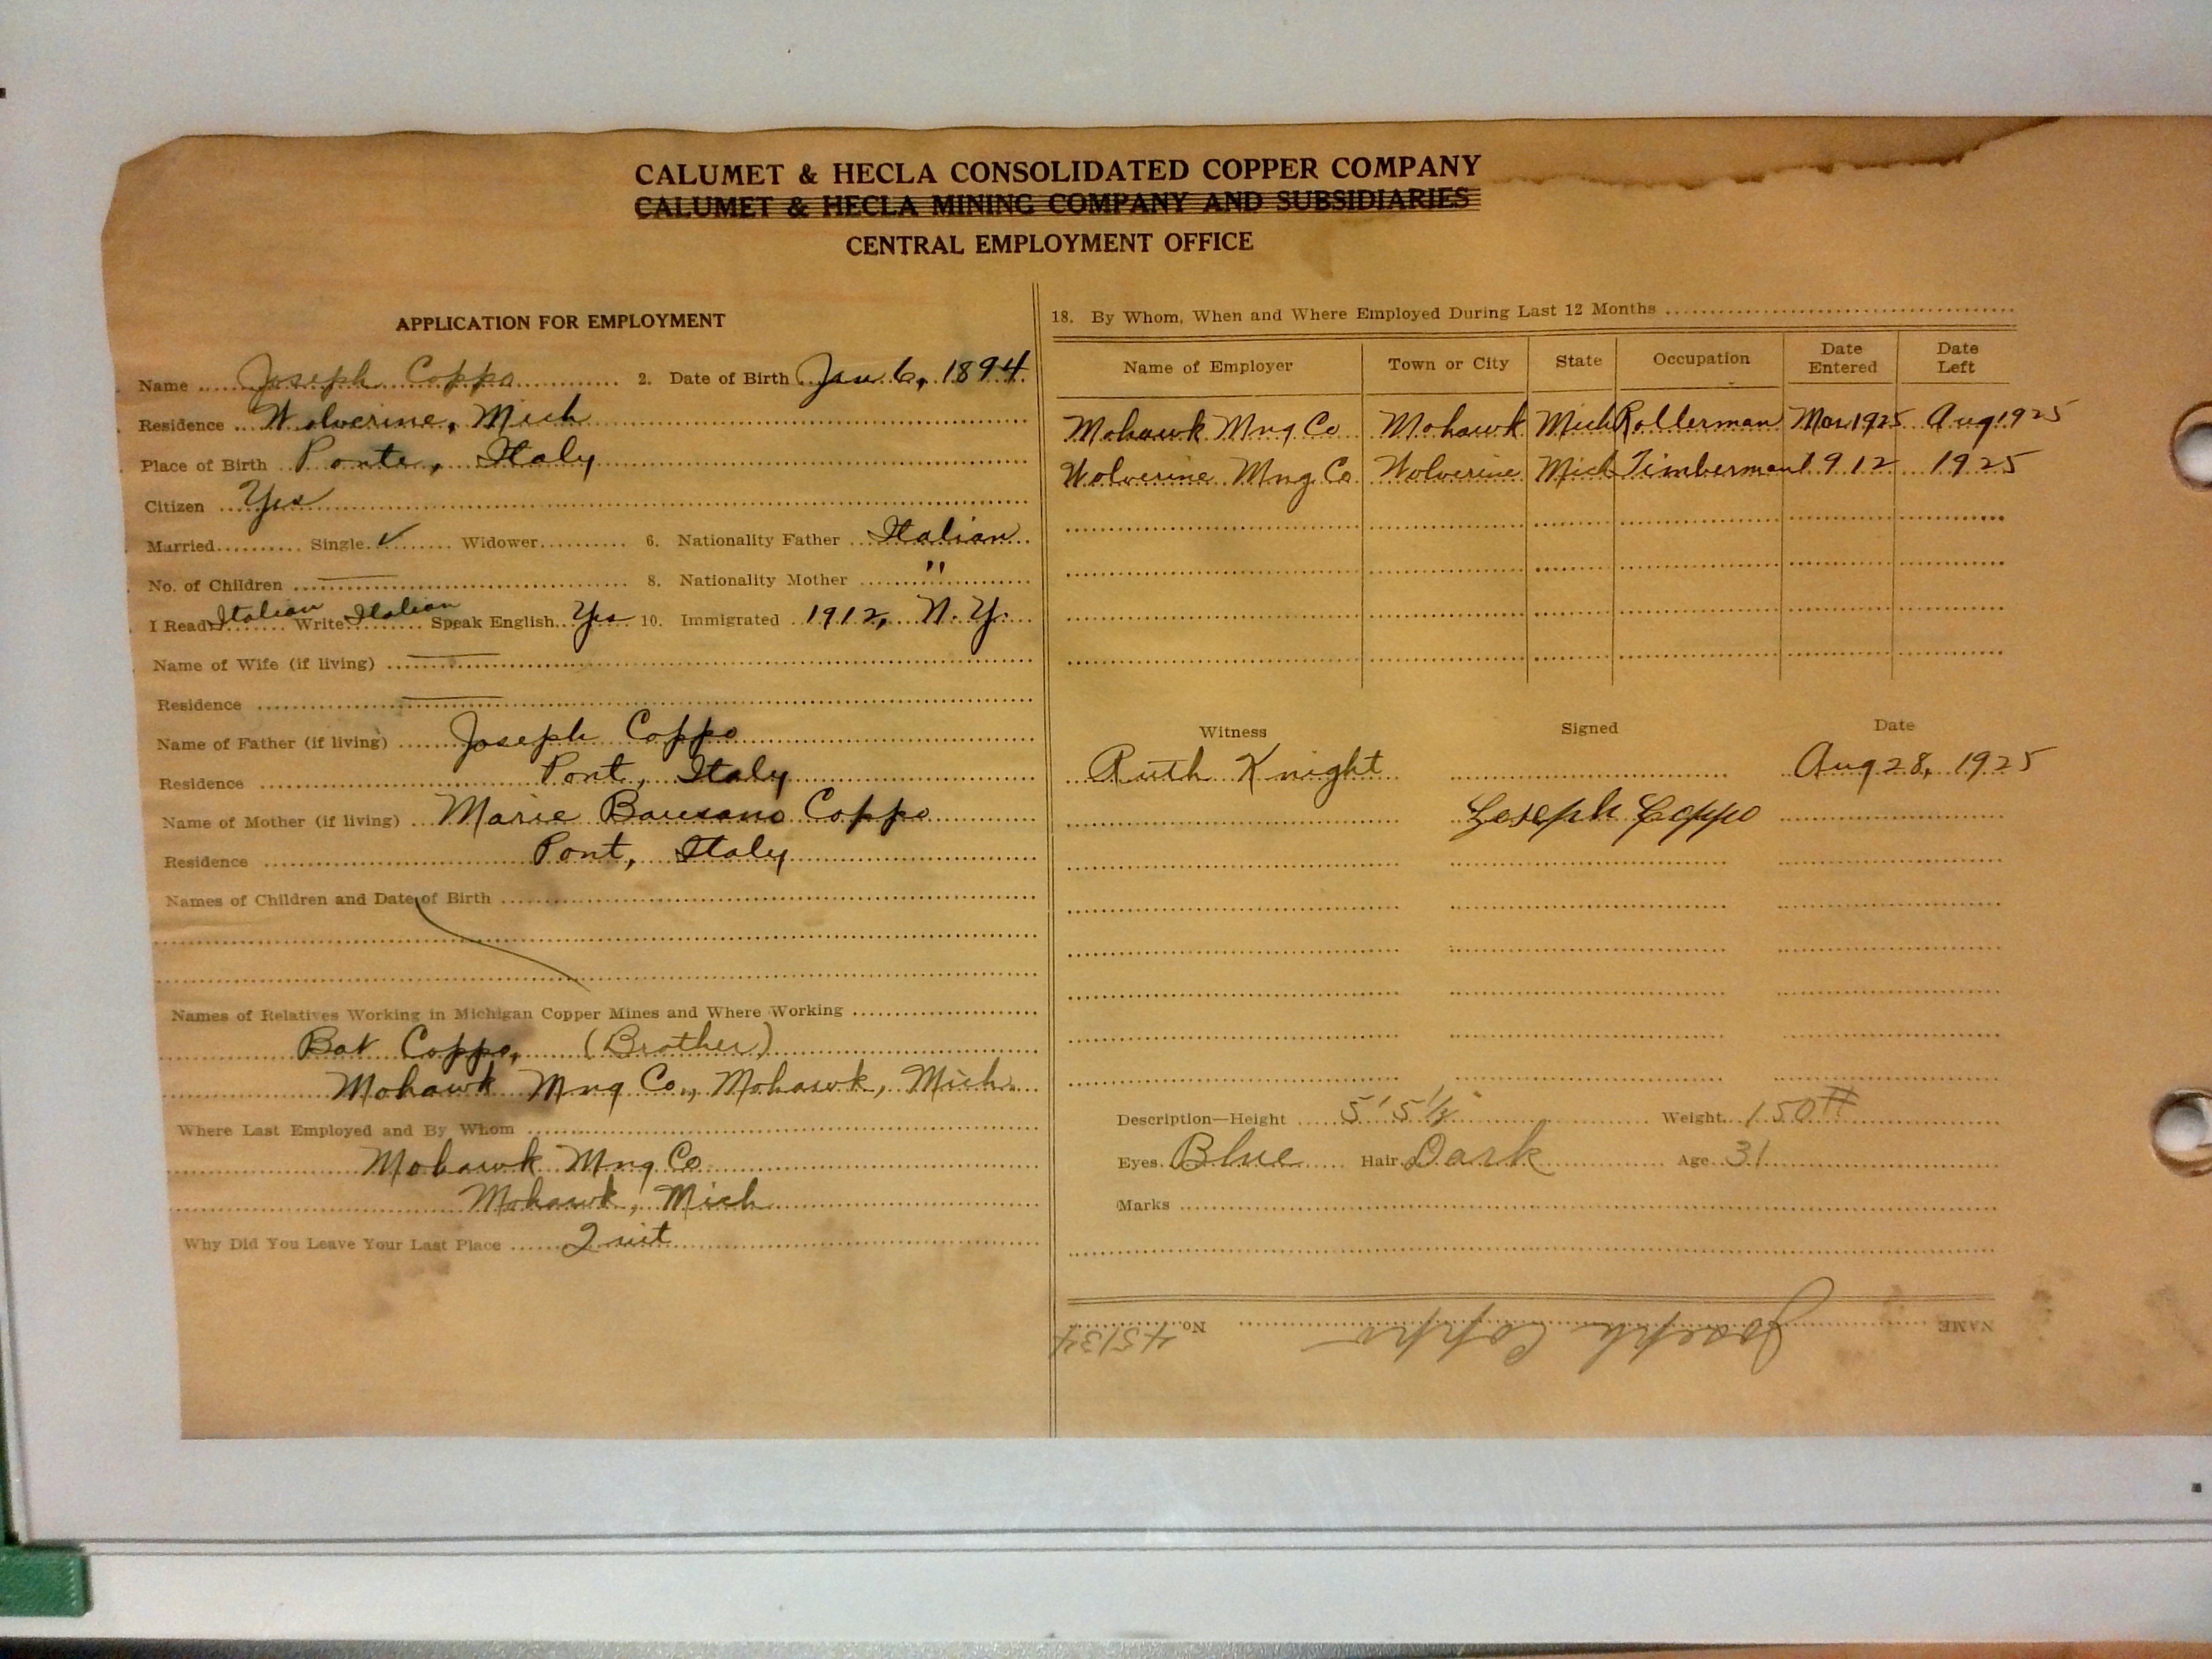 CALUMET & HECLA CONSOLIDATED COPPER COMPANY
CALUMET & HECLA MINING COMPANY AND SUBSIDIARIES
CENTRAL EMPLOYMENT OFFICE
APPLICATION FOR EMPLOYMENT
Name Joseph Coppo 2. Date of Birth Jan 6, 1894
Residence Wolverine, Mich
Place of Birth Ponte, Italy
Citizen Yes
Married Single ✓ Widower 6. Nationality Father Italian
No. of Children — 8. Nationality Mother "
I Read Italian Write Italian Speak English Yes 10. Immigrated 1912, N.Y.
Name of Wife (if living) —
Residence —
Name of Father (if living) Joseph Coppo
Residence Pont, Italy
Name of Mother (if living) Marie Coppo
Residence Pont, Italy
Names of Children and Date of Birth
Names of Relatives Working in Michigan Copper Mines and Where Working
Bat Coppo, (Brother)
Mohawk Mng Co., Mohawk, Mich.
Where Last Employed and By Whom
Mohawk Mng Co
Mohawk, Mich
Why Did You Leave Your Last Place Quit
18. By Whom, When and Where Employed During Last 12 Months
Name of Employer Town or City State Occupation Date Entered Date Left
Mohawk Mng Co Mohawk Mich Rollerman Mar 1925 Aug 1925
Wolverine Mng Co Wolverine Mich Timberman 1912 1925
Witness Signed Date
Ruth Knight Aug 28, 1925
Joseph Coppo
Description—Height 5' 5½" Weight 150#
Eyes Blue Hair Dark Age 31
Marks
NAME Joseph Coppo No. 45134